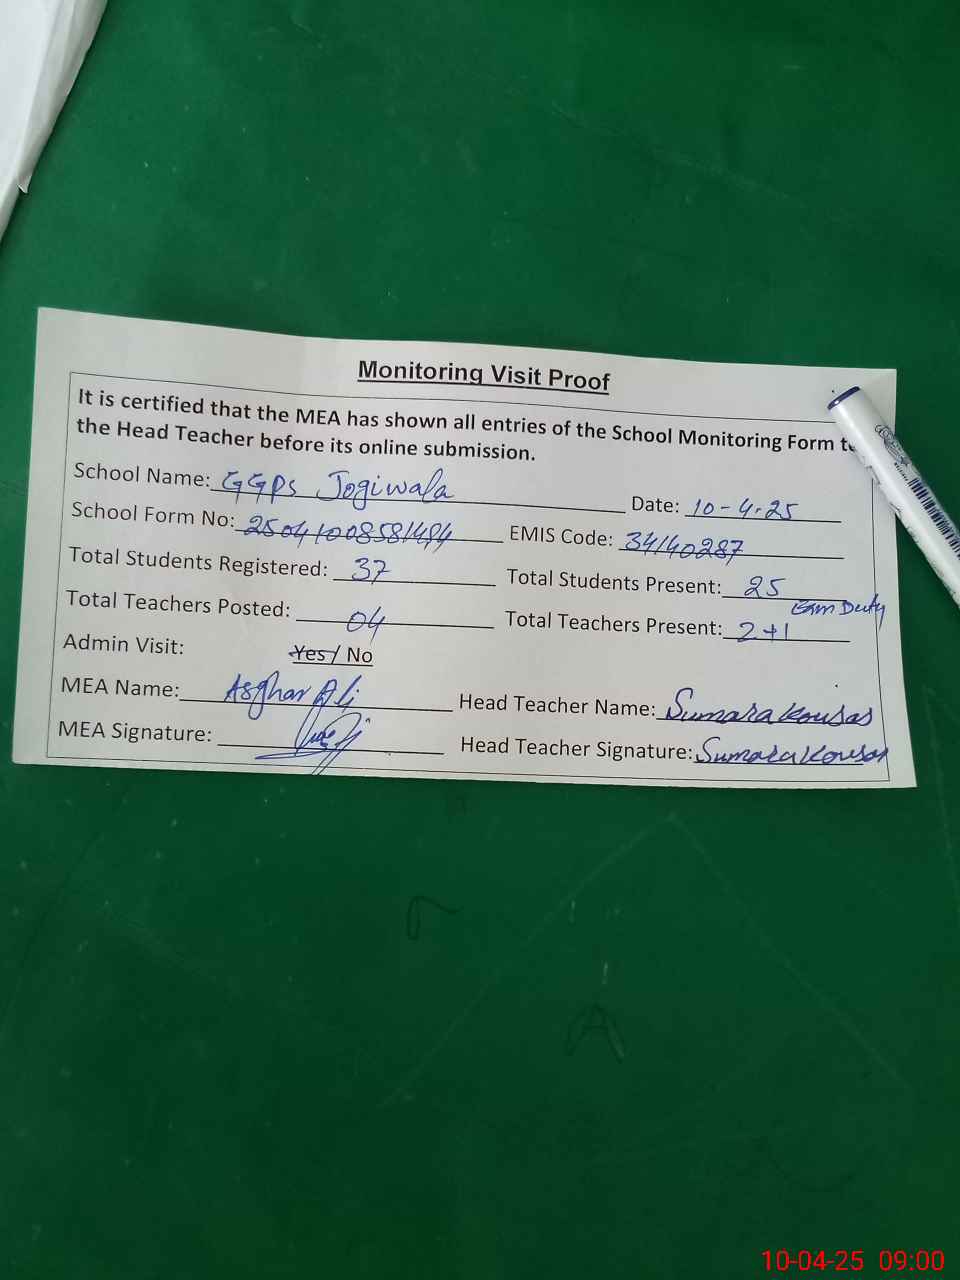 Monitoring Visit Proof
It is certified that the MEA has shown all entries of the School Monitoring Form to
the Head Teacher before its online submission.
School Name: GGPS Jogiwala Date: 10-4-25
School Form No: EMIS Code: 34140287
Total Students Registered: 37 Total Students Present: 25
Total Teachers Posted: 04 Total Teachers Present: 2+1 Exm Duty
Admin Visit: Yes / No
MEA Name: Asghar Ali Head Teacher Name: Sumara Kousar
MEA Signature: Head Teacher Signature: Sumara Kousar
10-04-25 09:00